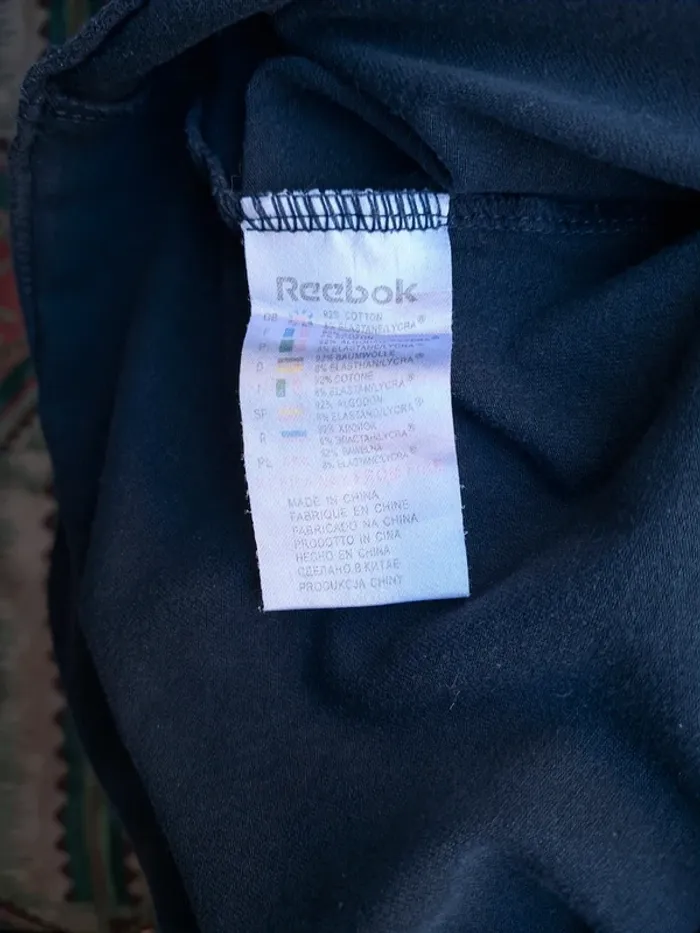 Reebok
GB 92% COTTON
8% ELASTANE/LYCRA®
F
8% ELASTANE/LYCRA®
D 92% BAUMWOLLE
8% ELASTHAN/LYCRA®
I 92% COTONE
8% ELASTAN/LYCRA®
SP 92% ALGODON
8% ELASTANO/LYCRA®
R 92% ХЛОПОК
8% ЭЛАСТАН/LYCRA®
PL 92% BAWEŁNA
8% ELASTANO/LYCRA®
MADE IN CHINA
FABRIQUE EN CHINE
FABRICADO NA CHINA
PRODOTTO IN CINA
HECHO EN CHINA
СДЕЛАНО В КИТАЕ
PRODUKCJA CHINY